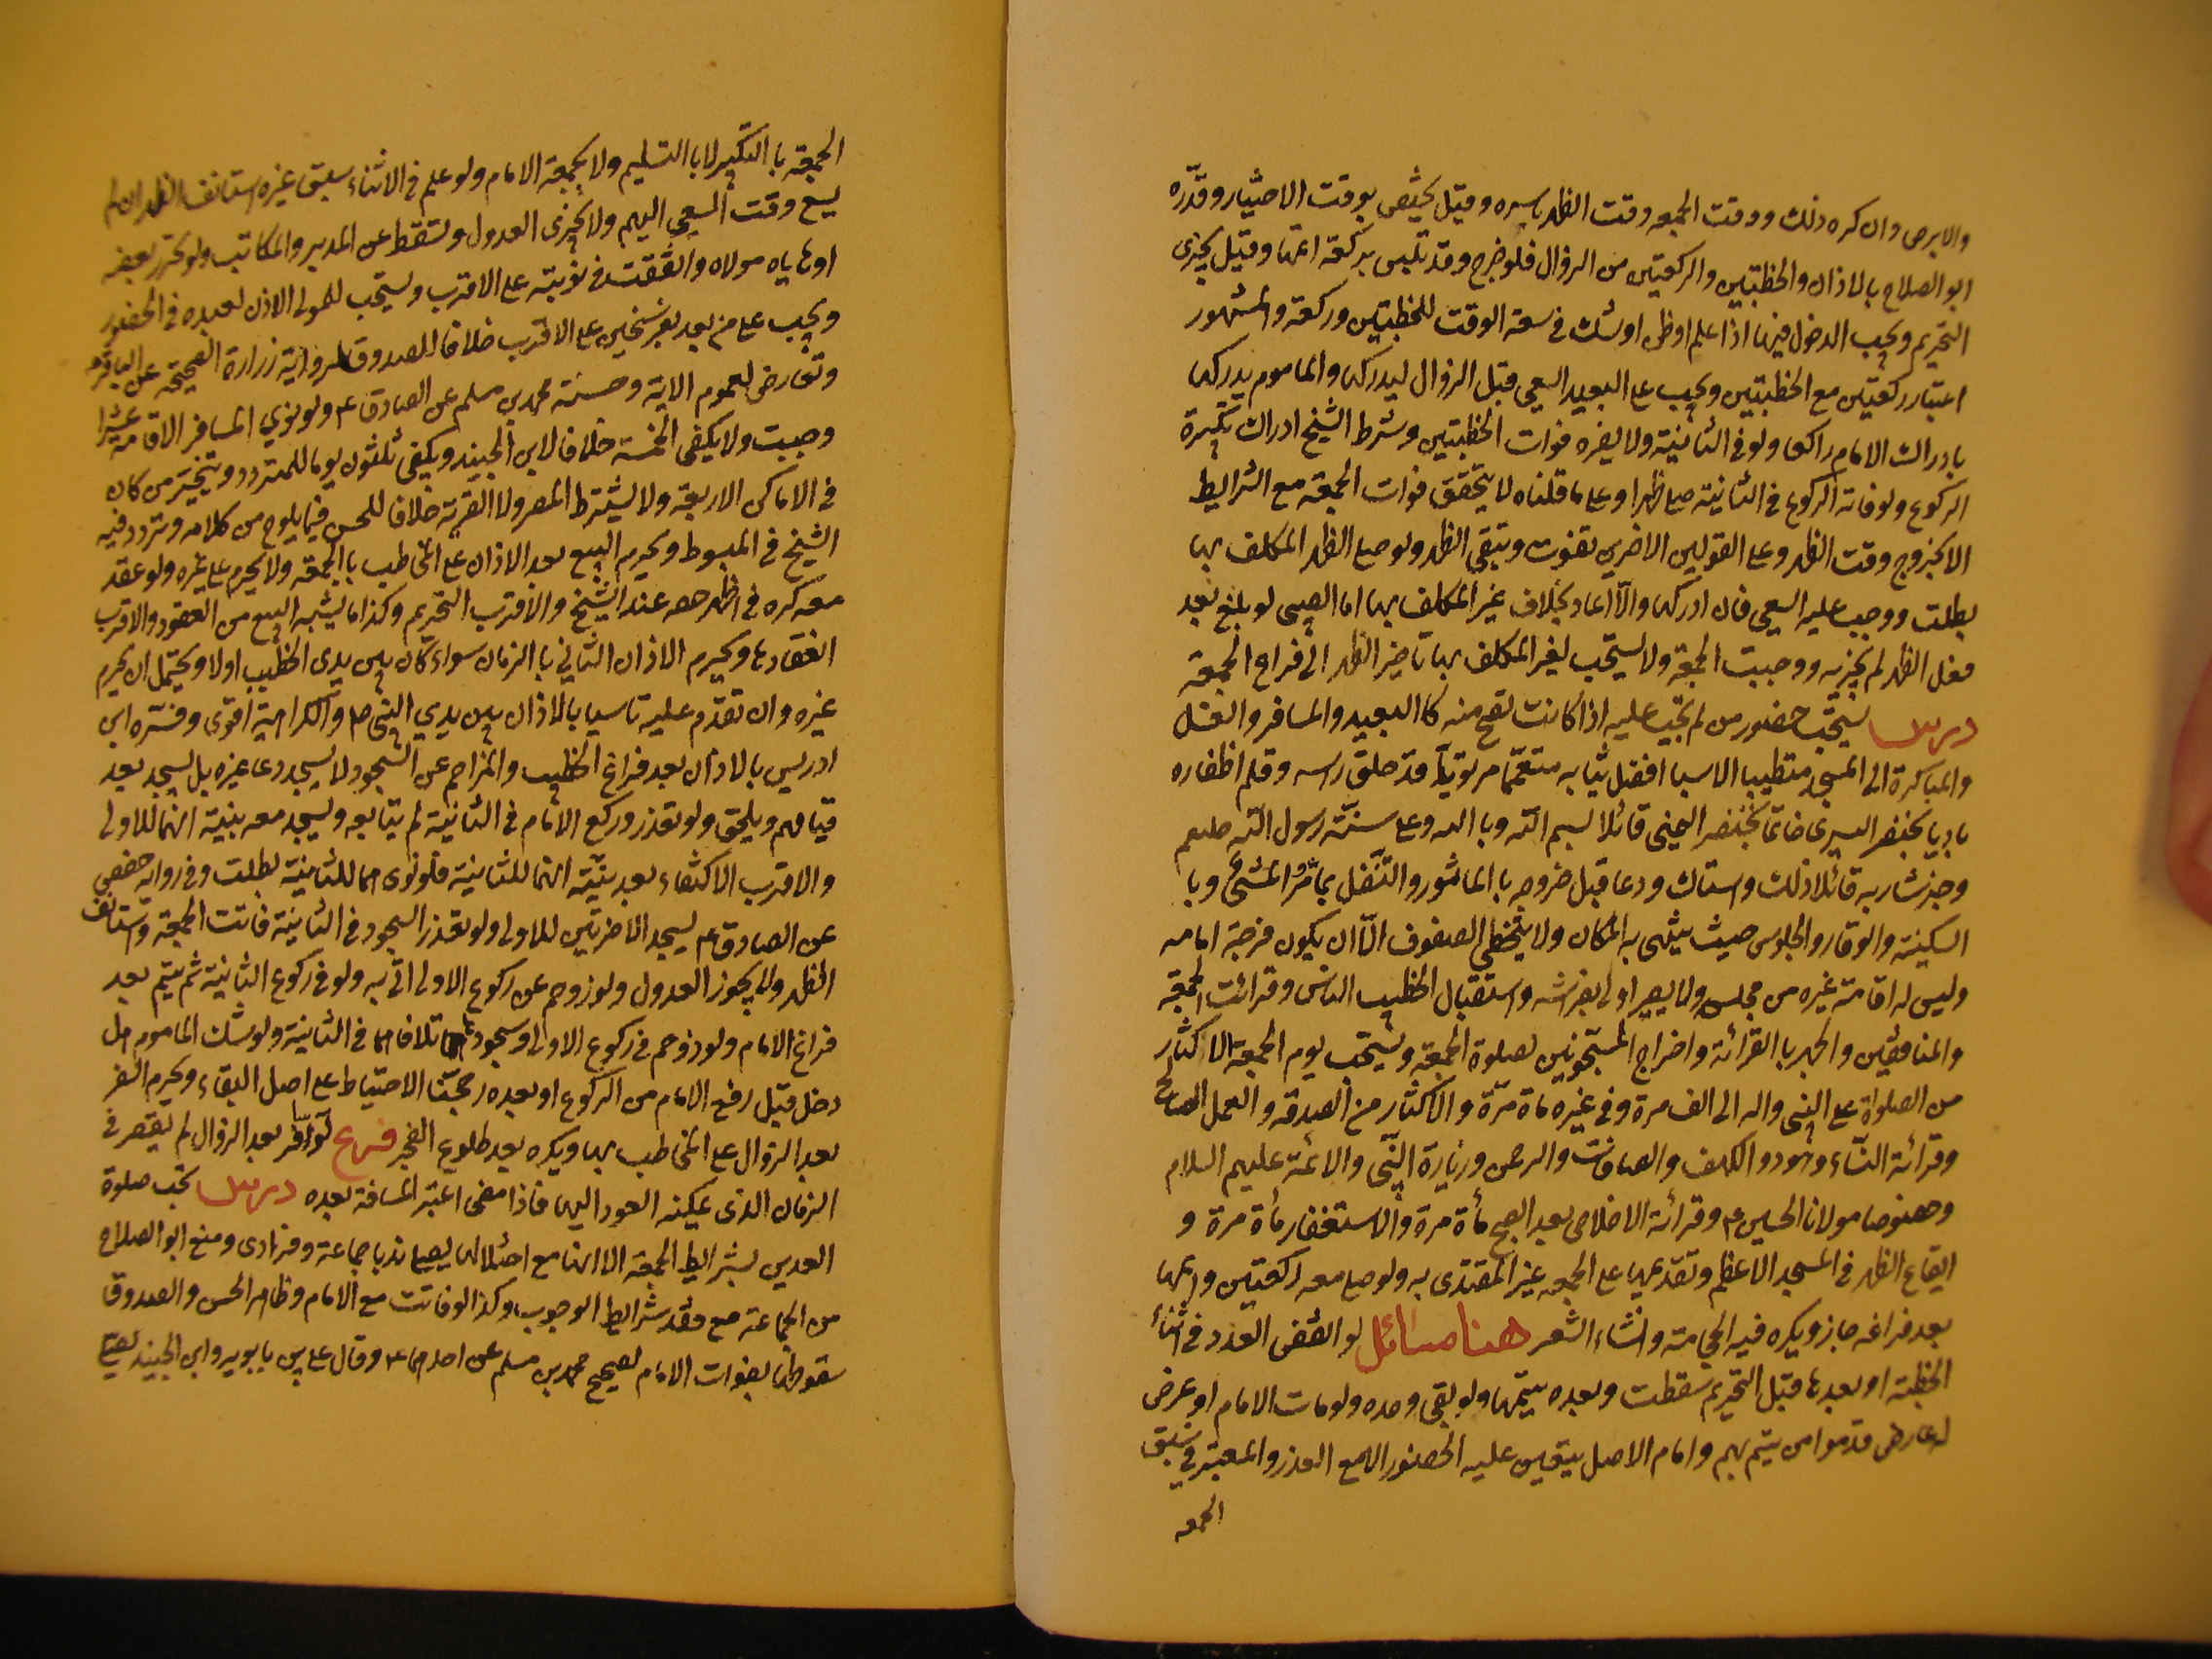 والابرص وان كره ذلك ووقت الجمعه وقت الظهر باسره وقيل يختص بوقت الاختيار وقدّره
ابو الصلاح بالاذان والخطبتين والركعتين من الزوال فلو خرج وقد تلبس بركعة اتمها وقيل يجزى
التحريم ويجب الدخول فيها اذا علم او ظن او شك في سعة الوقت للخطبتين وركعة والمشهور
اعتبار ركعتين مع الخطبتين ويجب على البعيد السعي قبل الزوال ليدركها والماموم يدركها
بادراك الامام راكعا ولو في الثانية ولا يضره فوات الخطبتين وشرط الشيخ ادراك تكبيرة
الركوع ولو فاته الركوع في الثانية صلى ظهرا وعلى ما قلناه لا يتحقق فوات الجمعة مع الشرايط
الا بخروج وقت الظهر وعلى القولين الاخرين تفوت وتبقى الظهر ولو صلى الظهر المكلف بها
بطلت ووجب عليه السعي فان ادركها والّا اعاد بخلاف غير المكلف بها اما الصبي لو بلغ بعد
فعل الظهر لم يجزيه ووجبت الجمعة ولا يستحب لغير المكلف بها تاخير الظهر الى فراغ الجمعة
درس يستحب حضور من لم تجب عليه اذا كانت تصح منه كالبعيد والمسافر والغسل
والمباكرة الى المسجد متطيبا لابسا افضل ثيابه متعمّما مرتديا قد حلق راسه وقلم اظفاره
باديا بخنصر اليسرى خاتما بخنصر اليمنى قائلا بسم الله وبالله وعلى سنّة رسول الله صلعم
وجز شاربه قائلا ذلك واستاك ودعا قبل خروجه با الماثور والتنفل بما مرّ والمشي و با
السكينة والوقار والجلوس حيث ينتهى به المكان ولا يتخطى الصفوف الّا ان يكون فرجة امامه
وليس له اقامة غيره من مجلسه ولا يصير اولى بفراشه واستقبال الخطيب الناس وقرائت الجمعة
والمنافقين والجهر با القرائة واخراج المسجونين لصلوة الجمعة ويستحب يوم الجمعة الاكثار
من الصلواة على النبى واله الى الف مرة وفي غيره ماة مرّة والاكثار من الصدقه والعمل الصالح
وقرائة النّساء وهود والكهف والصافات والرحمن وزيارة النّبى والائمّة عليهم السلام
وخصوصا مولانا الحسين ع وقرائة الاخلاص بعد الصبح مأة مرة والاستغفار مأة مرة و
ايقاع الظهر في المسجد الاعظم وتقديمها على الجمعه غير المقتدى به ولو صلى معه ركعتين واتمها
بعد فراغه جاز ويكره فيه الحجامة وانشاء الشعر هنا مسائل لو انفض العدد في اثناء
الخطبة او بعدها قبل التحريم سقطت وبعده يتمها ولو بقى وحده ولو مات الامام او عرض
له عارض قدموا من يتم بهم وامام الاصل يتعين عليه الحضور الا مع العذر والمعتبر في سبق
الجمعه
الجمعة با التكبير لا با التسليم ولا بجمعة الامام ولو علم في الاثناء سبق غيره استانف الظهر ان لم
يسع وقت السعي اليهم ولا يجزى العدول وتسقط عن المدبر والمكاتب ولو تحرر بعضه
او هاياه مولاه واتفقت في نوبته على الاقرب ويستحب للمولى الاذن لعبده في الحضور
ويجب على من بعد بفرسخين على الاقرب خلافا للصدوق لرواية زرارة الصحيحة عن الباقر ع
وتعارض لعموم الاية وحسنة محمد بن مسلم عن الصادق ع ولو نوى المسافر الاقامة عشرا
وجبت ولا يكفى الخمسة خلافا لابن الجنيد ويكفى ثلثون يوما للمتردد ويتخير من كان
في الاماكن الاربعة ولا يشترط المصر ولا القرية خلافا للحسن فيما يلوح من كلامه وتردد فيه
الشيخ في المبسوط ويحرم البيع بعد الاذان على المخاطب با الجمعة ولا يحرم على غيره ولو عقد
معه كره في اظهر عند الشيخ والاقرب التحريم وكذا ما يشبه البيع من العقود والاقرب
انعقادها ويحرم الاذان الثاني با الزمان سواء كان بين يدى الخطيب اولا ويحتمل ان يحرم
غيره وان تقدّم عليه تاسيا بالاذان بين يدي النبى ص والكراهية اقوى وفسّره ابن
ادريس بالاذان بعد فراغ الخطيب والمزاحم عن السجود لا يسجد على غيره بل يسجد بعد
قيامهم ويلحق ولو تعذر وركع الامام في الثانية لم يتابعه ويسجد معه بنية انهما للاولى
والاقرب الاكتفاء بعد بنيّة انهما للثانية فلو نوى بهما للثانية بطلت وفي رواية حفص
عن الصادق ع يسجد اخرتين للاولى ولو تعذر السجود في الثانية فاتت الجمعة واستانف
الظهر ولا يجوز العدول ولو زوحم عن ركوع الاولى اتى به ولو في ركوع الثانية ثم يتم بعد
فراغ الامام ولو زوحم في ركوع الاولى وسجودها تلافاهما في الثانية ولو شك الماموم هل
دخل قبل رفع الامام من الركوع او بعده رجحنا الاحتياط على اصل البقاء ويحرم السفر
بعد الزوال على المخاطب بها ويكره بعد طلوع الفجر فرع لو سافر بعد الزوال لم يقصر في
الزمان الذى يمكنه العود اليها فاذا مضى اعتبر المسافة بعده درس تجب صلوة
العدين بشرايط الجمعة الا انها مع اختلالها يصلى ندبا جماعة وفرادى ومنع ابو الصلاح
من الجماعة مع فقد شرايط الوجوب وكذا لو فاتت مع الامام وظاهر الحسن والصدوق
سقوطها بفوات الامام لصحيح محمد بن مسلم عن احدهما ع وقال على بن بابويه وابن الجنيد يصلى